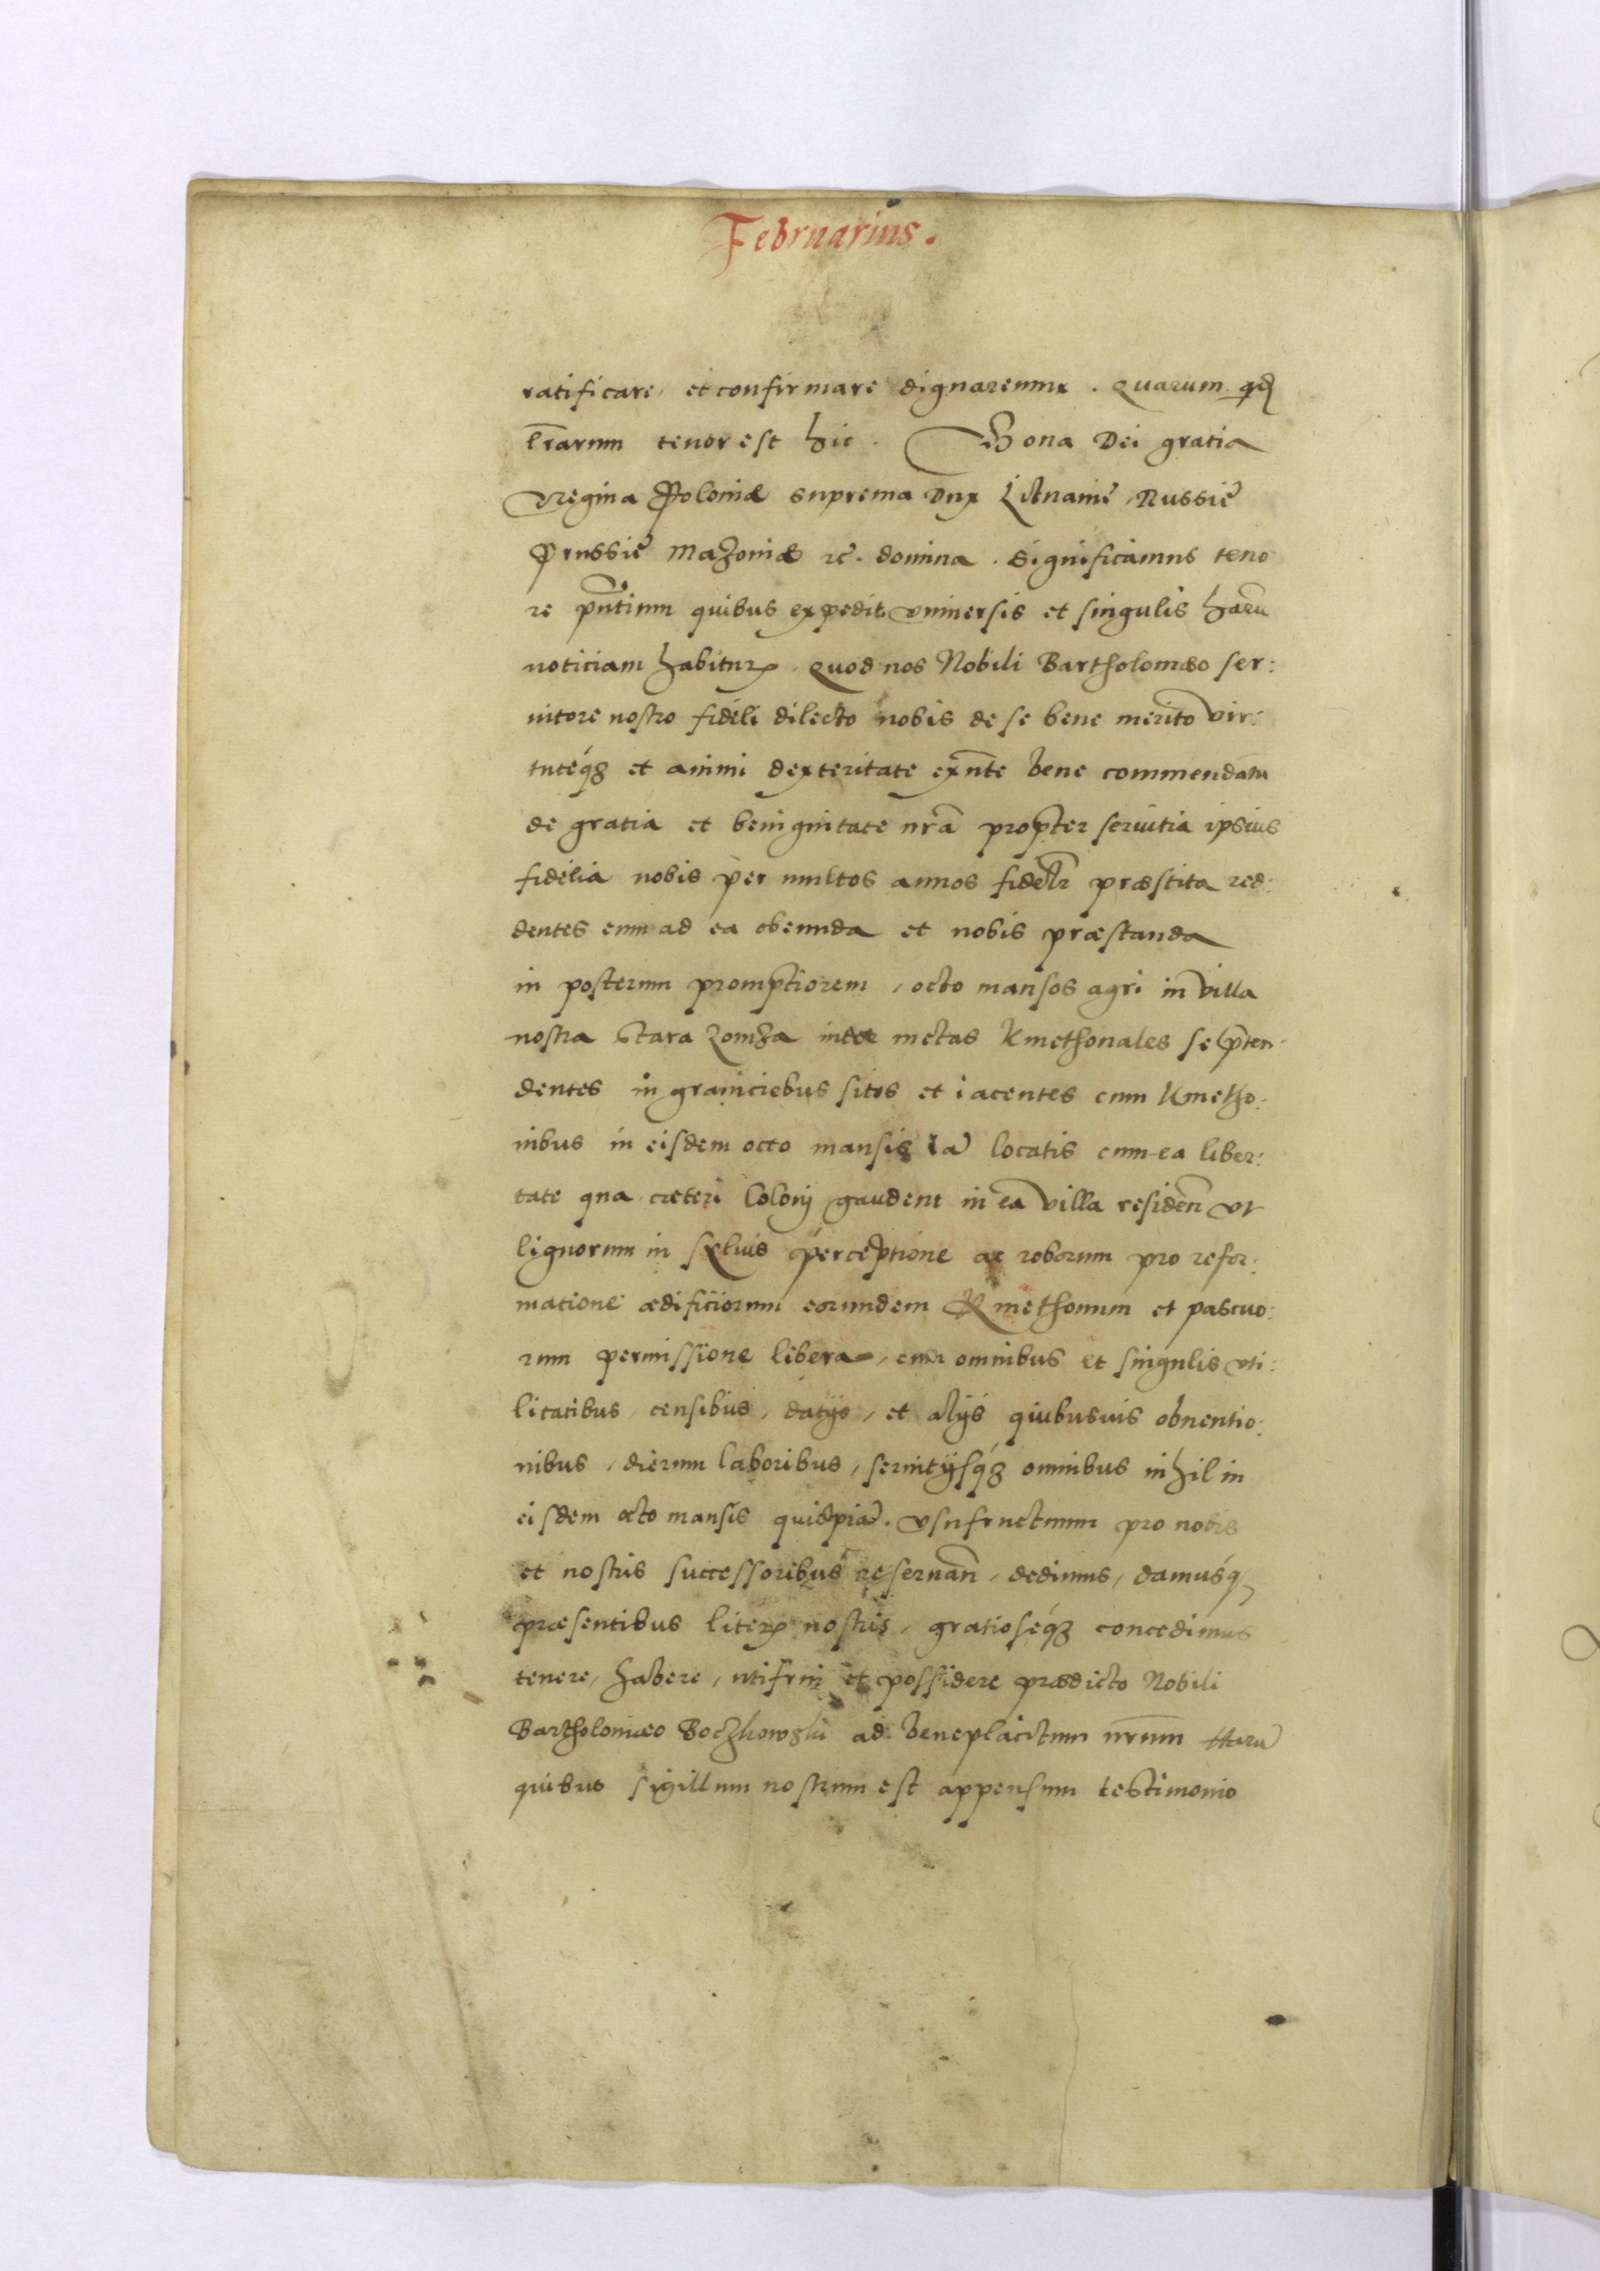 Februarius.
ratificare, et confirmare dignaremur. Quarum qd
lr̃arum tenor est hic. Bona Dei gratia
Regina Poloniæ suprema Dux Lituaniẽ, Russiẽ
Prussiẽ Mazoniæ zc̃. domina. Significamus teno
re pñtium quibus expedit vniuersis et singulis harũ
noticiam habituris. Quod nos Nobili Bartholomæo ser:
uitore nostro fideli dilecto nobis de se bene merito vir:
tuteq́ꝫ et animi dexteritate exñte bene commendatũ
de gratia et benignitate nr̃a propter seruitia ipsius
fidelia nobis per multos annos fidelr̃ præstita red:
dentes eum ad ea obeunda et nobis præstanda
in posterum promptiorem, octo mansos agri in villa
nostra Stara Lomza inter metas Kmethonales se ⁠pten
dentes in graniciebus sitos et iacentes cum Kmetho:
nibus in eisdem octo mansis iã locatis cum ea liber:
tate qua cæteri Colonj gaudent in ea villa residen̄ vt
lignorum in syluis perceptione ac roborum pro refor:
matione ædificiorum eorundem Kmethonum et pascuo:
rum permissione libera, cum omnibus et singulis vti:
litatibus, censibus, datijs, et alijs quibusuis obuentio:
nibus, dierum laboribus, seruitijsq́ꝫ omnibus nihil in
eisdem octo mansis quicpiã. vsufructuum pro nobis
et nostris successoribus reseruan̄, dedimus, damusq́ꝫ
præsentibus literis nostris, gratioseq́ꝫ concedimus
tenere, habere, utifrui et possidere prædicto Nobili
Bartholomæo Boczkowski ad beneplacitum nr̃um Harũ
quibus sigillum nostrum est appensum testimonio